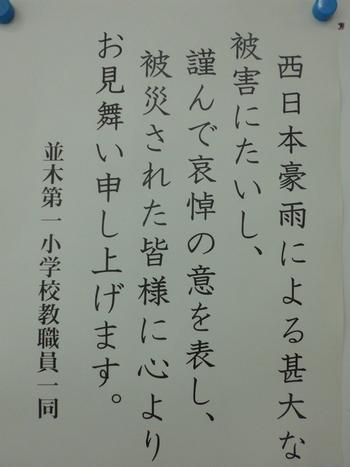 西日本豪雨による甚大な
被害にたいし、
謹んで哀悼の意を表し、
被災された皆様に心より
お見舞い申し上げます。
並木第一小学校教職員一同